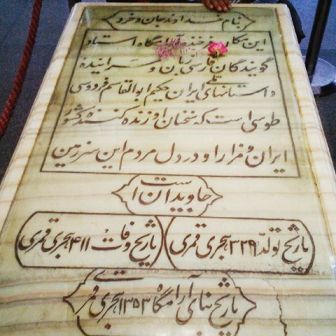 بنام خداوند جان و خرد
این مکان فرخنده آرامگاه استاد
گویندگان فارسی زبان و سراینده
داستانهای ملی ایران حکیم ابوالقاسم فردوسی
طوسی است که سخنان او زنده کننده کشور
ایران و مزار او در دل مردم این سرزمین
جاویدان است
تاریخ تولد ۳۲۹ هجری قمری
تاریخ وفات ۴۱۱ هجری قمری
تاریخ بنای آرامگاه ۱۳۵۳ هجری قمری